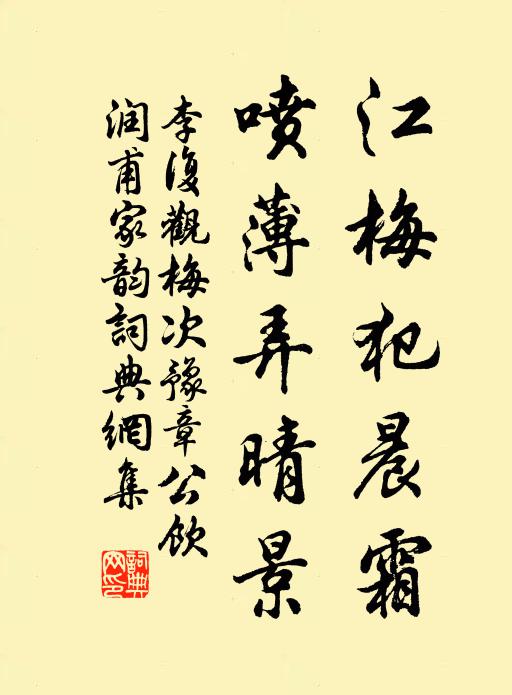 江梅犯晨霜
喷薄弄晴景
李復觀梅次豫章公飲
润甫家韵詞典網集
詞典网印